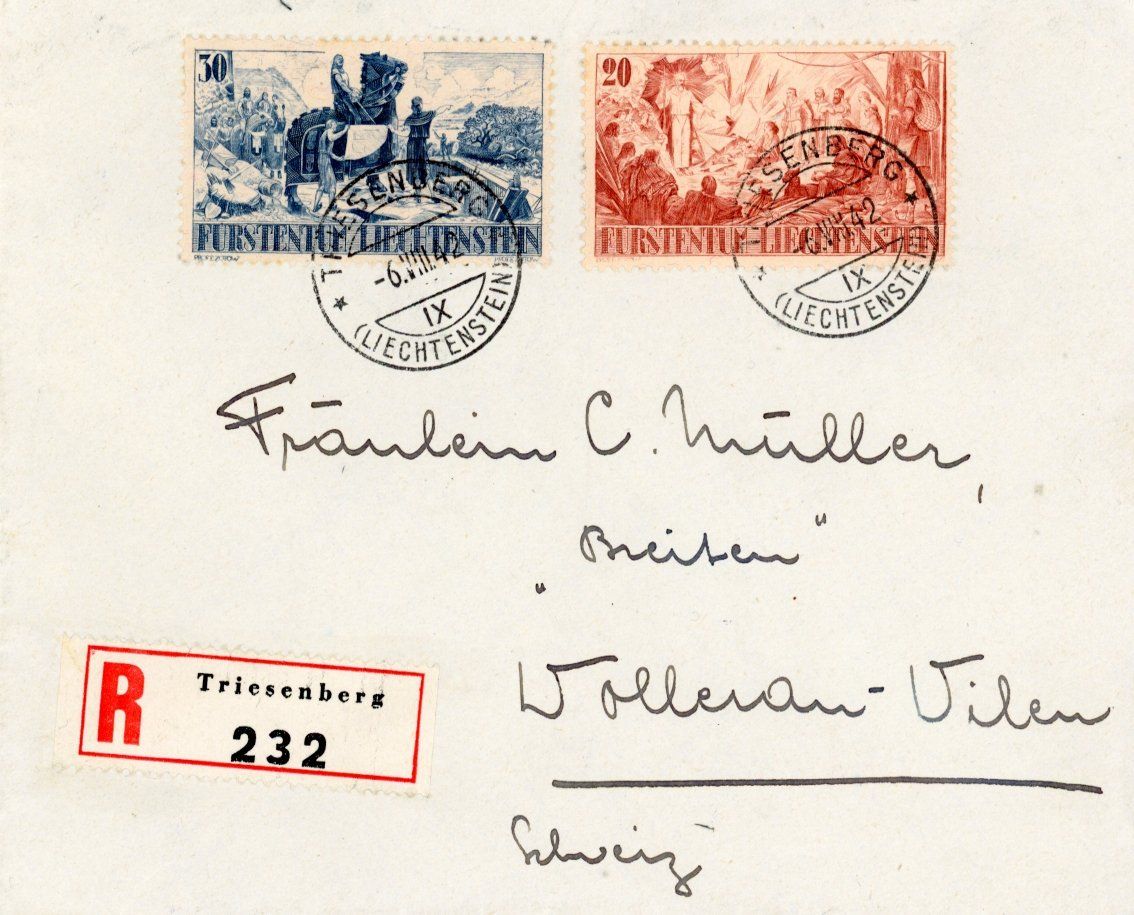 30
FÜRSTENTUM LIECHTENSTEIN
20
FÜRSTENTUM LIECHTENSTEIN
TRIESENBERG
-6.VIII.42
IX
(LIECHTENSTEIN)
TRIESENBERG
-6.VIII.42
IX
(LIECHTENSTEIN)
Fräulein C. Müller,
„Breiten“
Wollerau-Wilen
Schweiz
R
Triesenberg
232